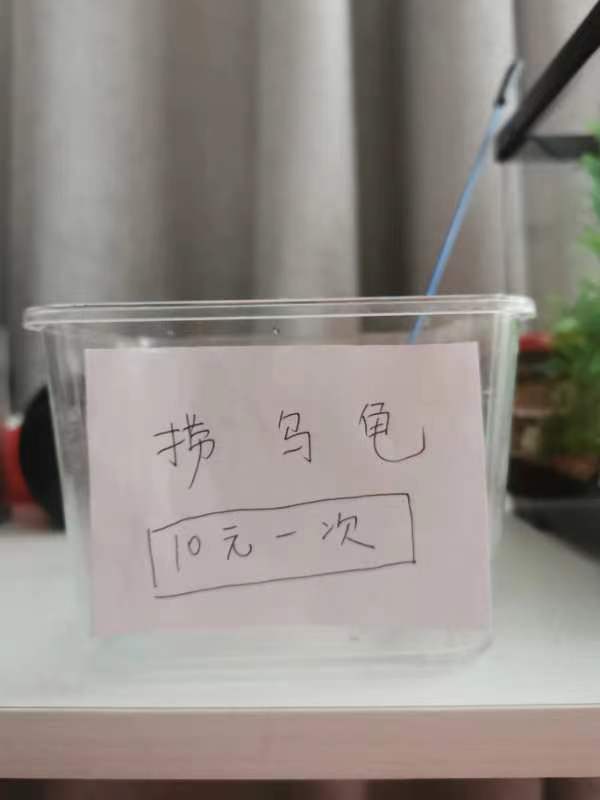 捞乌龟
10元一次